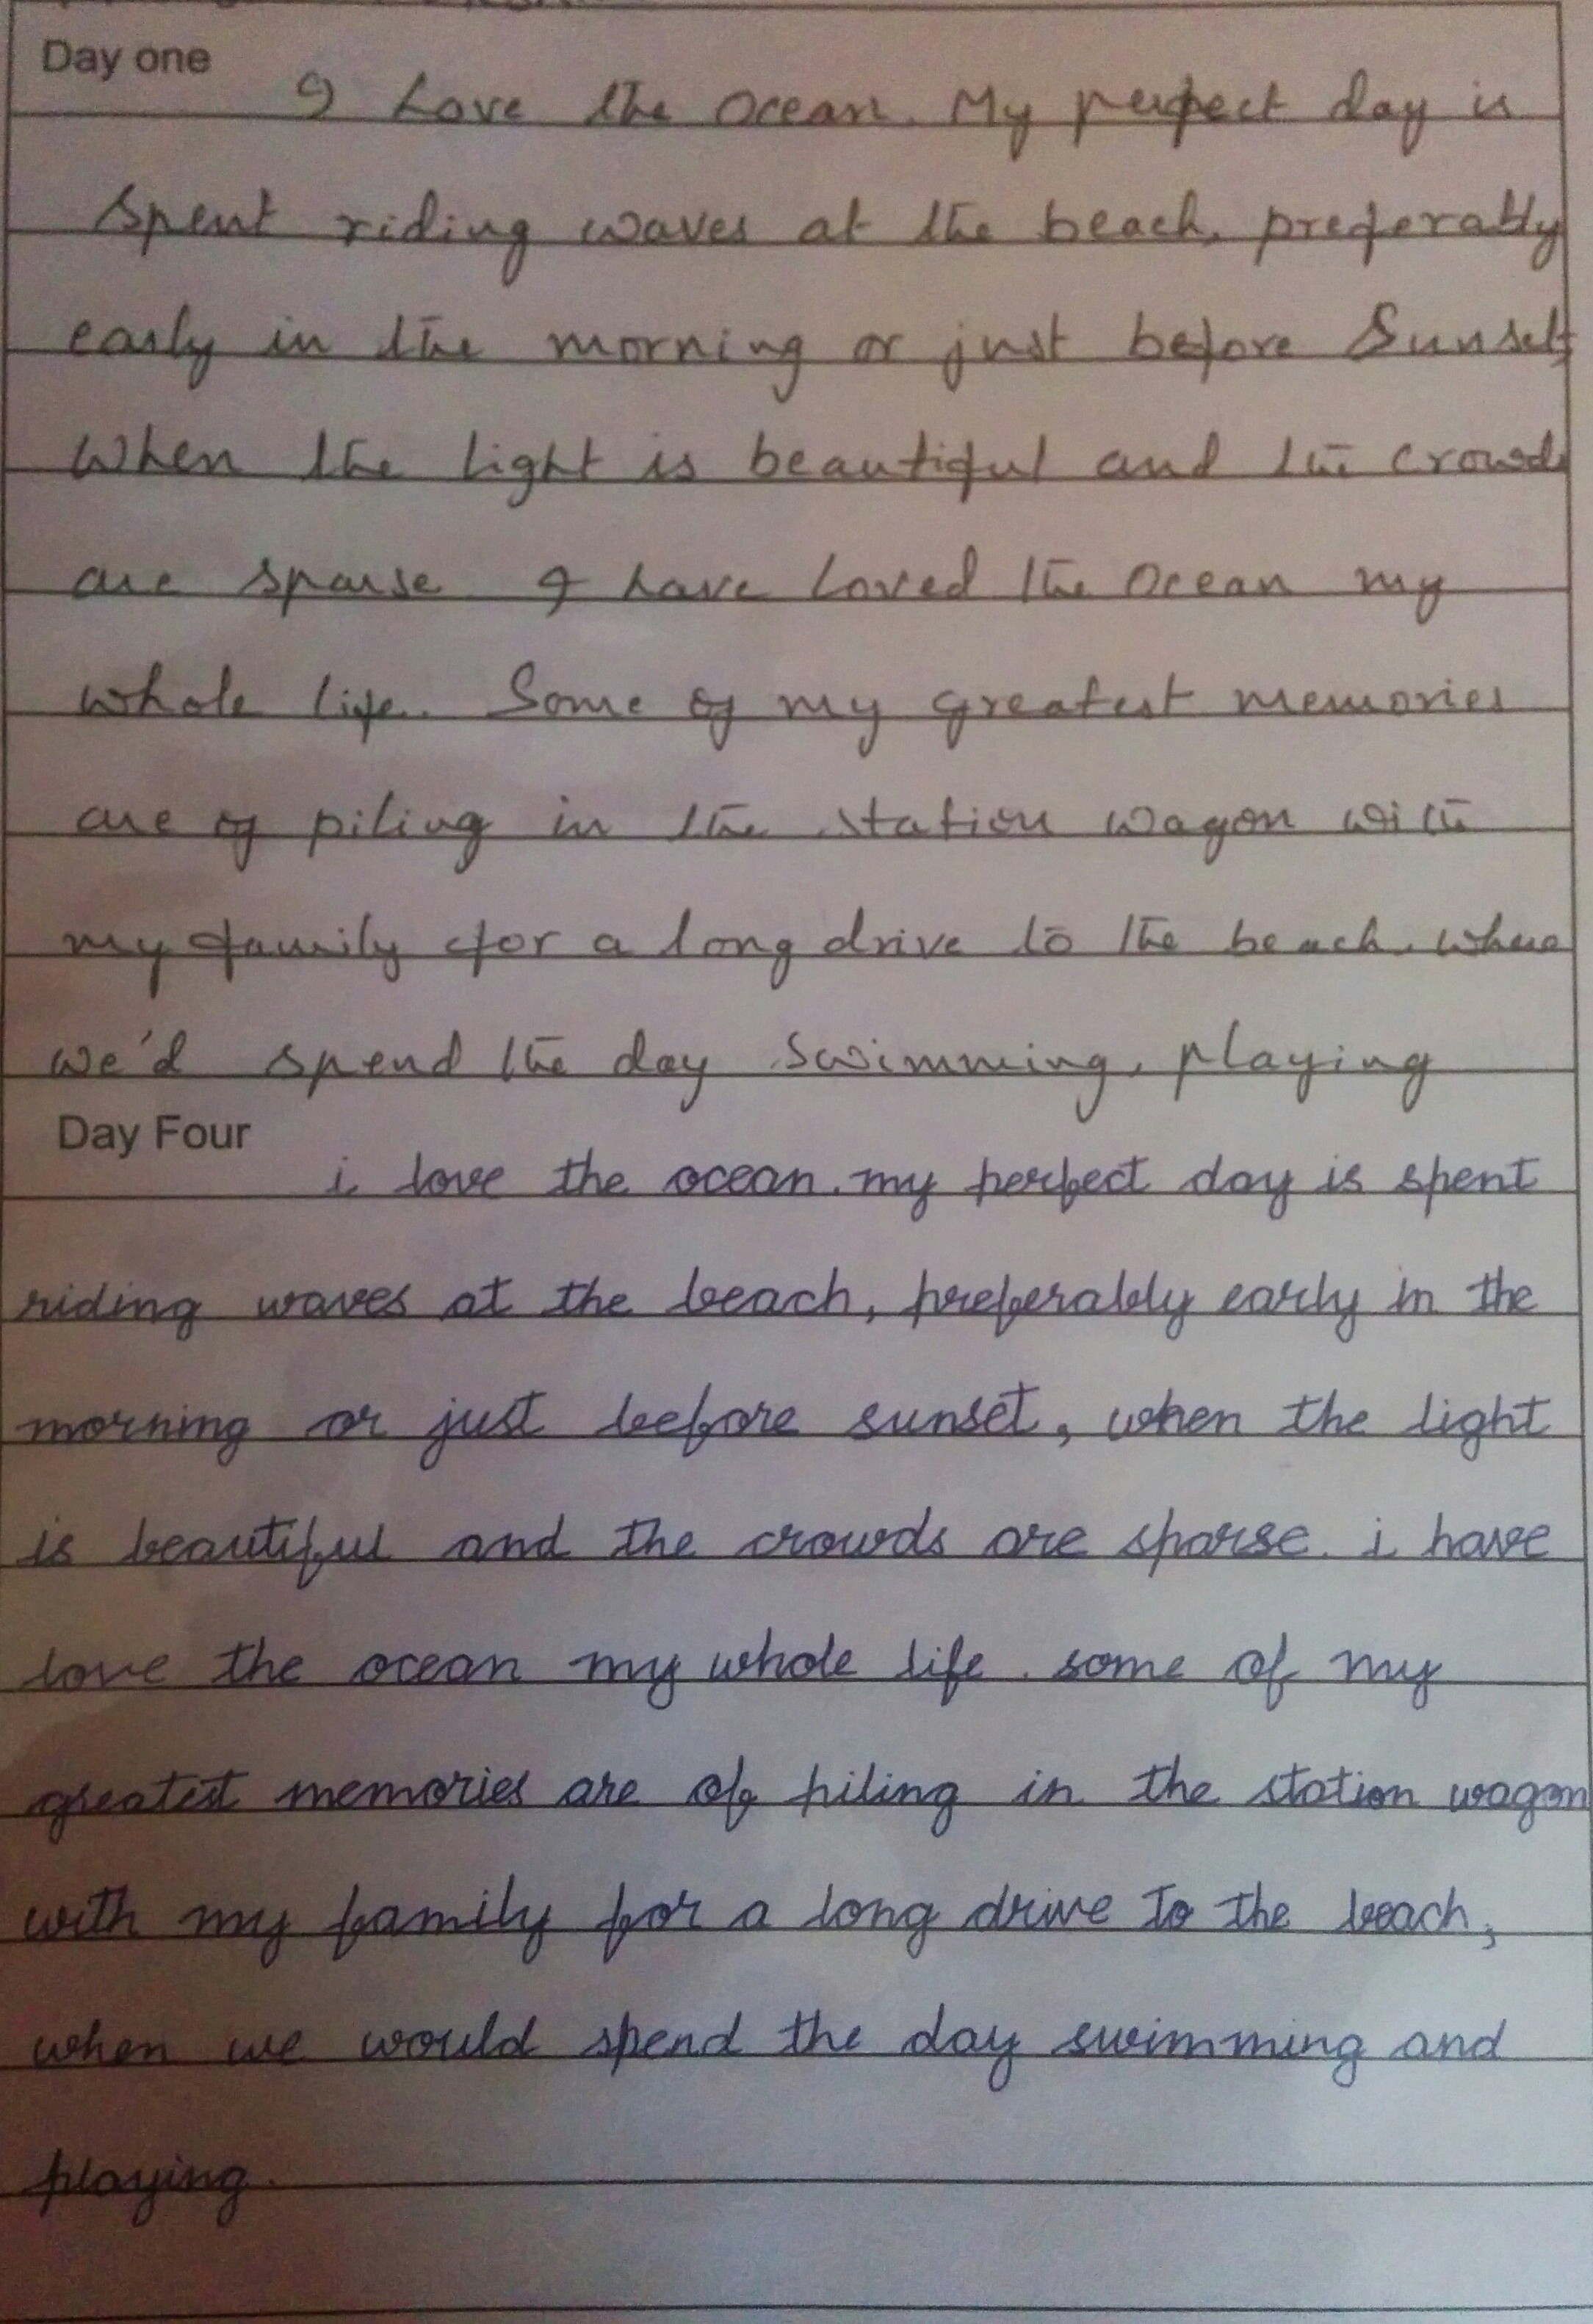 Day one
I Love the ocean. My perfect day is
spent riding waves at the beach, preferably
early in the morning or just before Sunset,
when the light is beautiful and the crowds
are sparse I have Loved the Ocean my
whole life. Some of my greatest memories
are of piling in the station wagon with
my family for a long drive to the beach, where
we'd spend the day swimming, playing
Day Four
i love the ocean. my perfect day is spent
riding waves at the beach, preferably early in the
morning or just beefore sunset, when the light
is beautiful and the crowds are sparse. i have
love the ocean my whole life. some of my
greatest memories are of piling in the station wagon
with my family for a long drive to the beach,
when we would spend the day swimming and
playing.